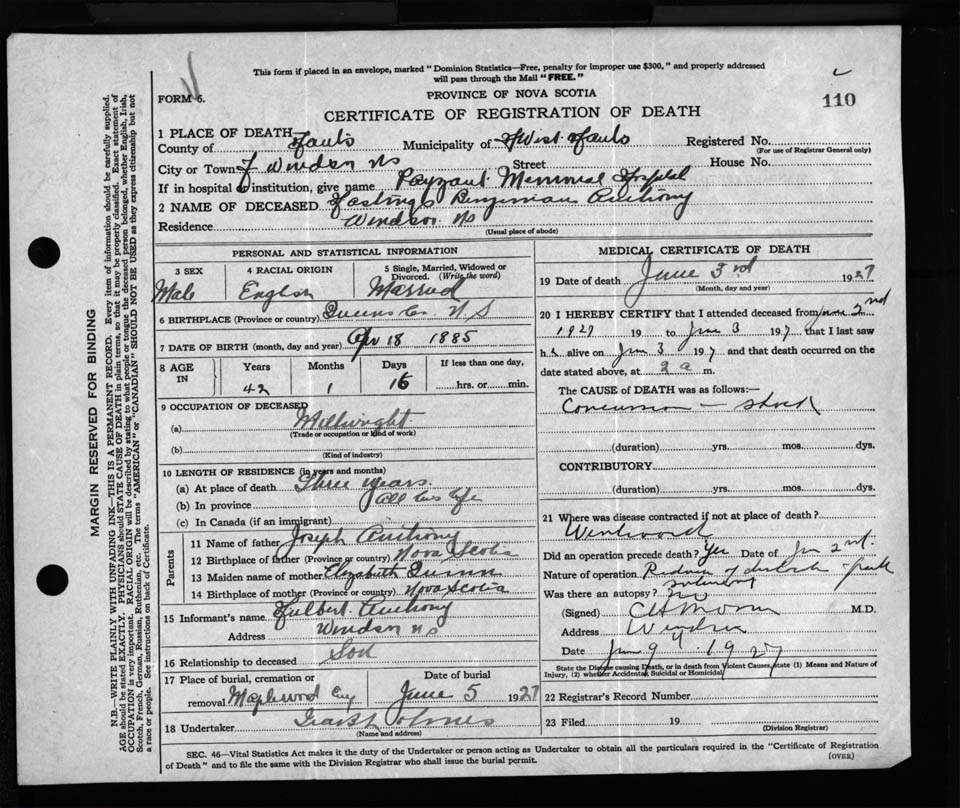 This form if placed in an envelope, marked "Dominion Statistics—Free, penalty for improper use $300," and properly addressed
will pass through the Mail "FREE."
FORM 6.
PROVINCE OF NOVA SCOTIA
110
CERTIFICATE OF REGISTRATION OF DEATH
1 PLACE OF DEATH
County of Hants Municipality of West Hants Registered No.
(For use of Registrar General only)
City or Town of Windsor NS Street House No.
If in hospital or institution, give name Payzant Memorial Hospital
2 NAME OF DECEASED Hastings Benjiman Anthony
Residence Windsor NS
(Usual place of abode)
PERSONAL AND STATISTICAL INFORMATION
3 SEX
Male
4 RACIAL ORIGIN
English
5 Single, Married, Widowed or
Divorced. (Write the word)
Married
6 BIRTHPLACE (Province or country) Queens Co. N.S
7 DATE OF BIRTH (month, day and year) Apr 18 1885
8 AGE
IN
Years Months Days If less than one day,
42 1 16 hrs. or min.
9 OCCUPATION OF DECEASED
(a) Millwright
(Trade or occupation or kind of work)
(b)
(Kind of industry)
10 LENGTH OF RESIDENCE (in years and months)
(a) At place of death Three years
(b) In province All his life
(c) In Canada (if an immigrant)
Parents
11 Name of father Joseph Anthony
12 Birthplace of father (Province or country) Nova Scotia
13 Maiden name of mother Elizabeth Quinn
14 Birthplace of mother (Province or country) Nova Scotia
15 Informant's name Hulbert Anthony
Address Windsor NS
16 Relationship to deceased Son
17 Place of burial, cremation or Date of burial
removal Maplewood Cny June 5 1927
18 Undertaker
(Name and address)
MEDICAL CERTIFICATE OF DEATH
19 Date of death June 3rd 1927
(Month, day and year)
20 I HEREBY CERTIFY that I attended deceased from June 2nd
1927 19 to June 3 197 that I last saw
h alive on Jun 3 197 and that death occurred on the
date stated above, at 2 a m.
The CAUSE of DEATH was as follows:—
Concussion — shock
(duration) yrs. mos. dys.
CONTRIBUTORY
(duration) yrs. mos. dys.
21 Where was disease contracted if not at place of death?
Wentword
Did an operation precede death? Yes Date of Jun 2nd.
Nature of operation
Was there an autopsy? No
(Signed) M.D.
Address Windsor
Date June 9th 1927
State the Disease causing Death, or in death from Violent Causes, state (1) Means and Nature of
Injury, (2) whether Accidental, Suicidal or Homicidal
22 Registrar's Record Number
23 Filed 19
(Division Registrar)
SEC. 46—Vital Statistics Act makes it the duty of the Undertaker or person acting as Undertaker to obtain all the particulars required in the "Certificate of Registration
of Death" and to file the same with the Division Registrar who shall issue the burial permit.
(OVER)
MARGIN RESERVED FOR BINDING
N.B.—WRITE PLAINLY WITH UNFADING INK—THIS IS A PERMANENT RECORD. Every item of information should be carefully supplied.
AGE should be stated EXACTLY. PHYSICIANS should STATE CAUSE OF DEATH in plain terms, so that it may be properly classified. Exact statement of
OCCUPATION is very important. RACIAL ORIGIN will be described by stating to what people or tongue the deceased person belonged, whether English, Irish,
Scotch, French, German, Russian, Ruthenian, etc. The terms "AMERICAN" or "CANADIAN" SHOULD NOT BE USED as they express citizenship but not
a race or people. See instructions on back of Certificate.